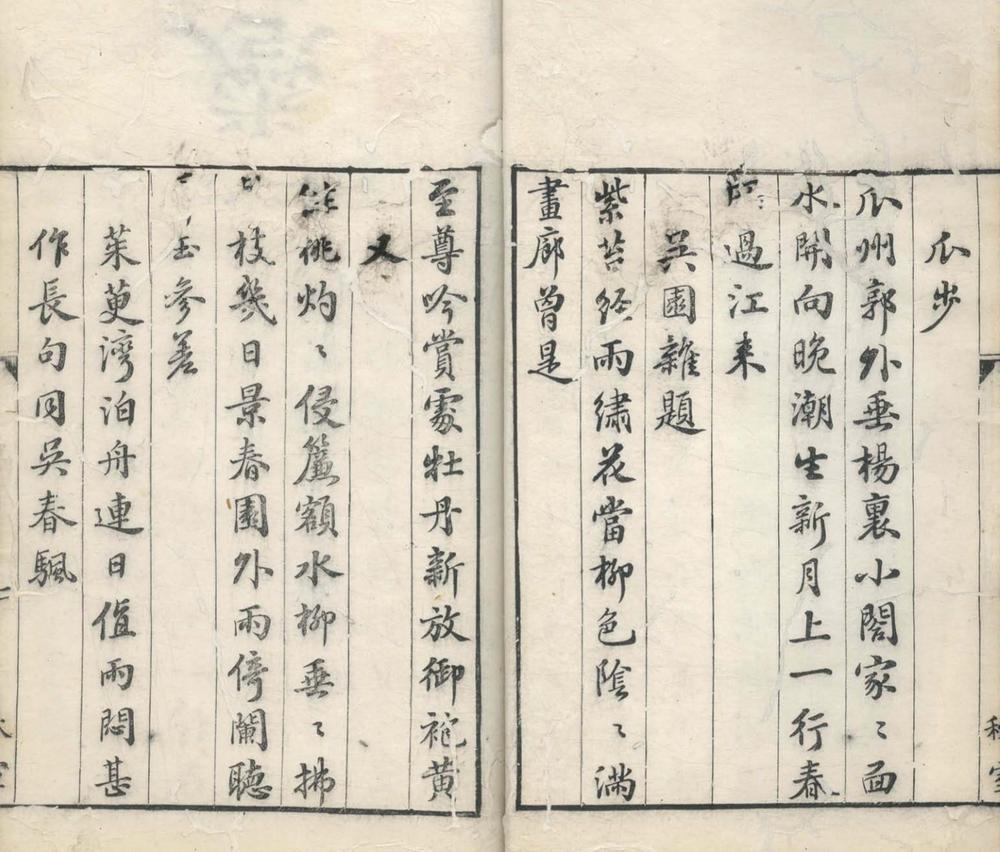 瓜步
瓜州郭外垂楊裏小閣家〻面
水開向晚潮生新月上一行春
過江来
吳園雜題
紫苔經雨繡花當柳色陰〻滿
畫廊曾是
至尊吟賞處牡丹新放御袍黄
又
桃灼〻侵簾額水柳垂〻拂
枝幾日景春園外雨停闌聴
玉參差
茱萸灣泊舟連日值雨悶甚
作長句同吳春颿